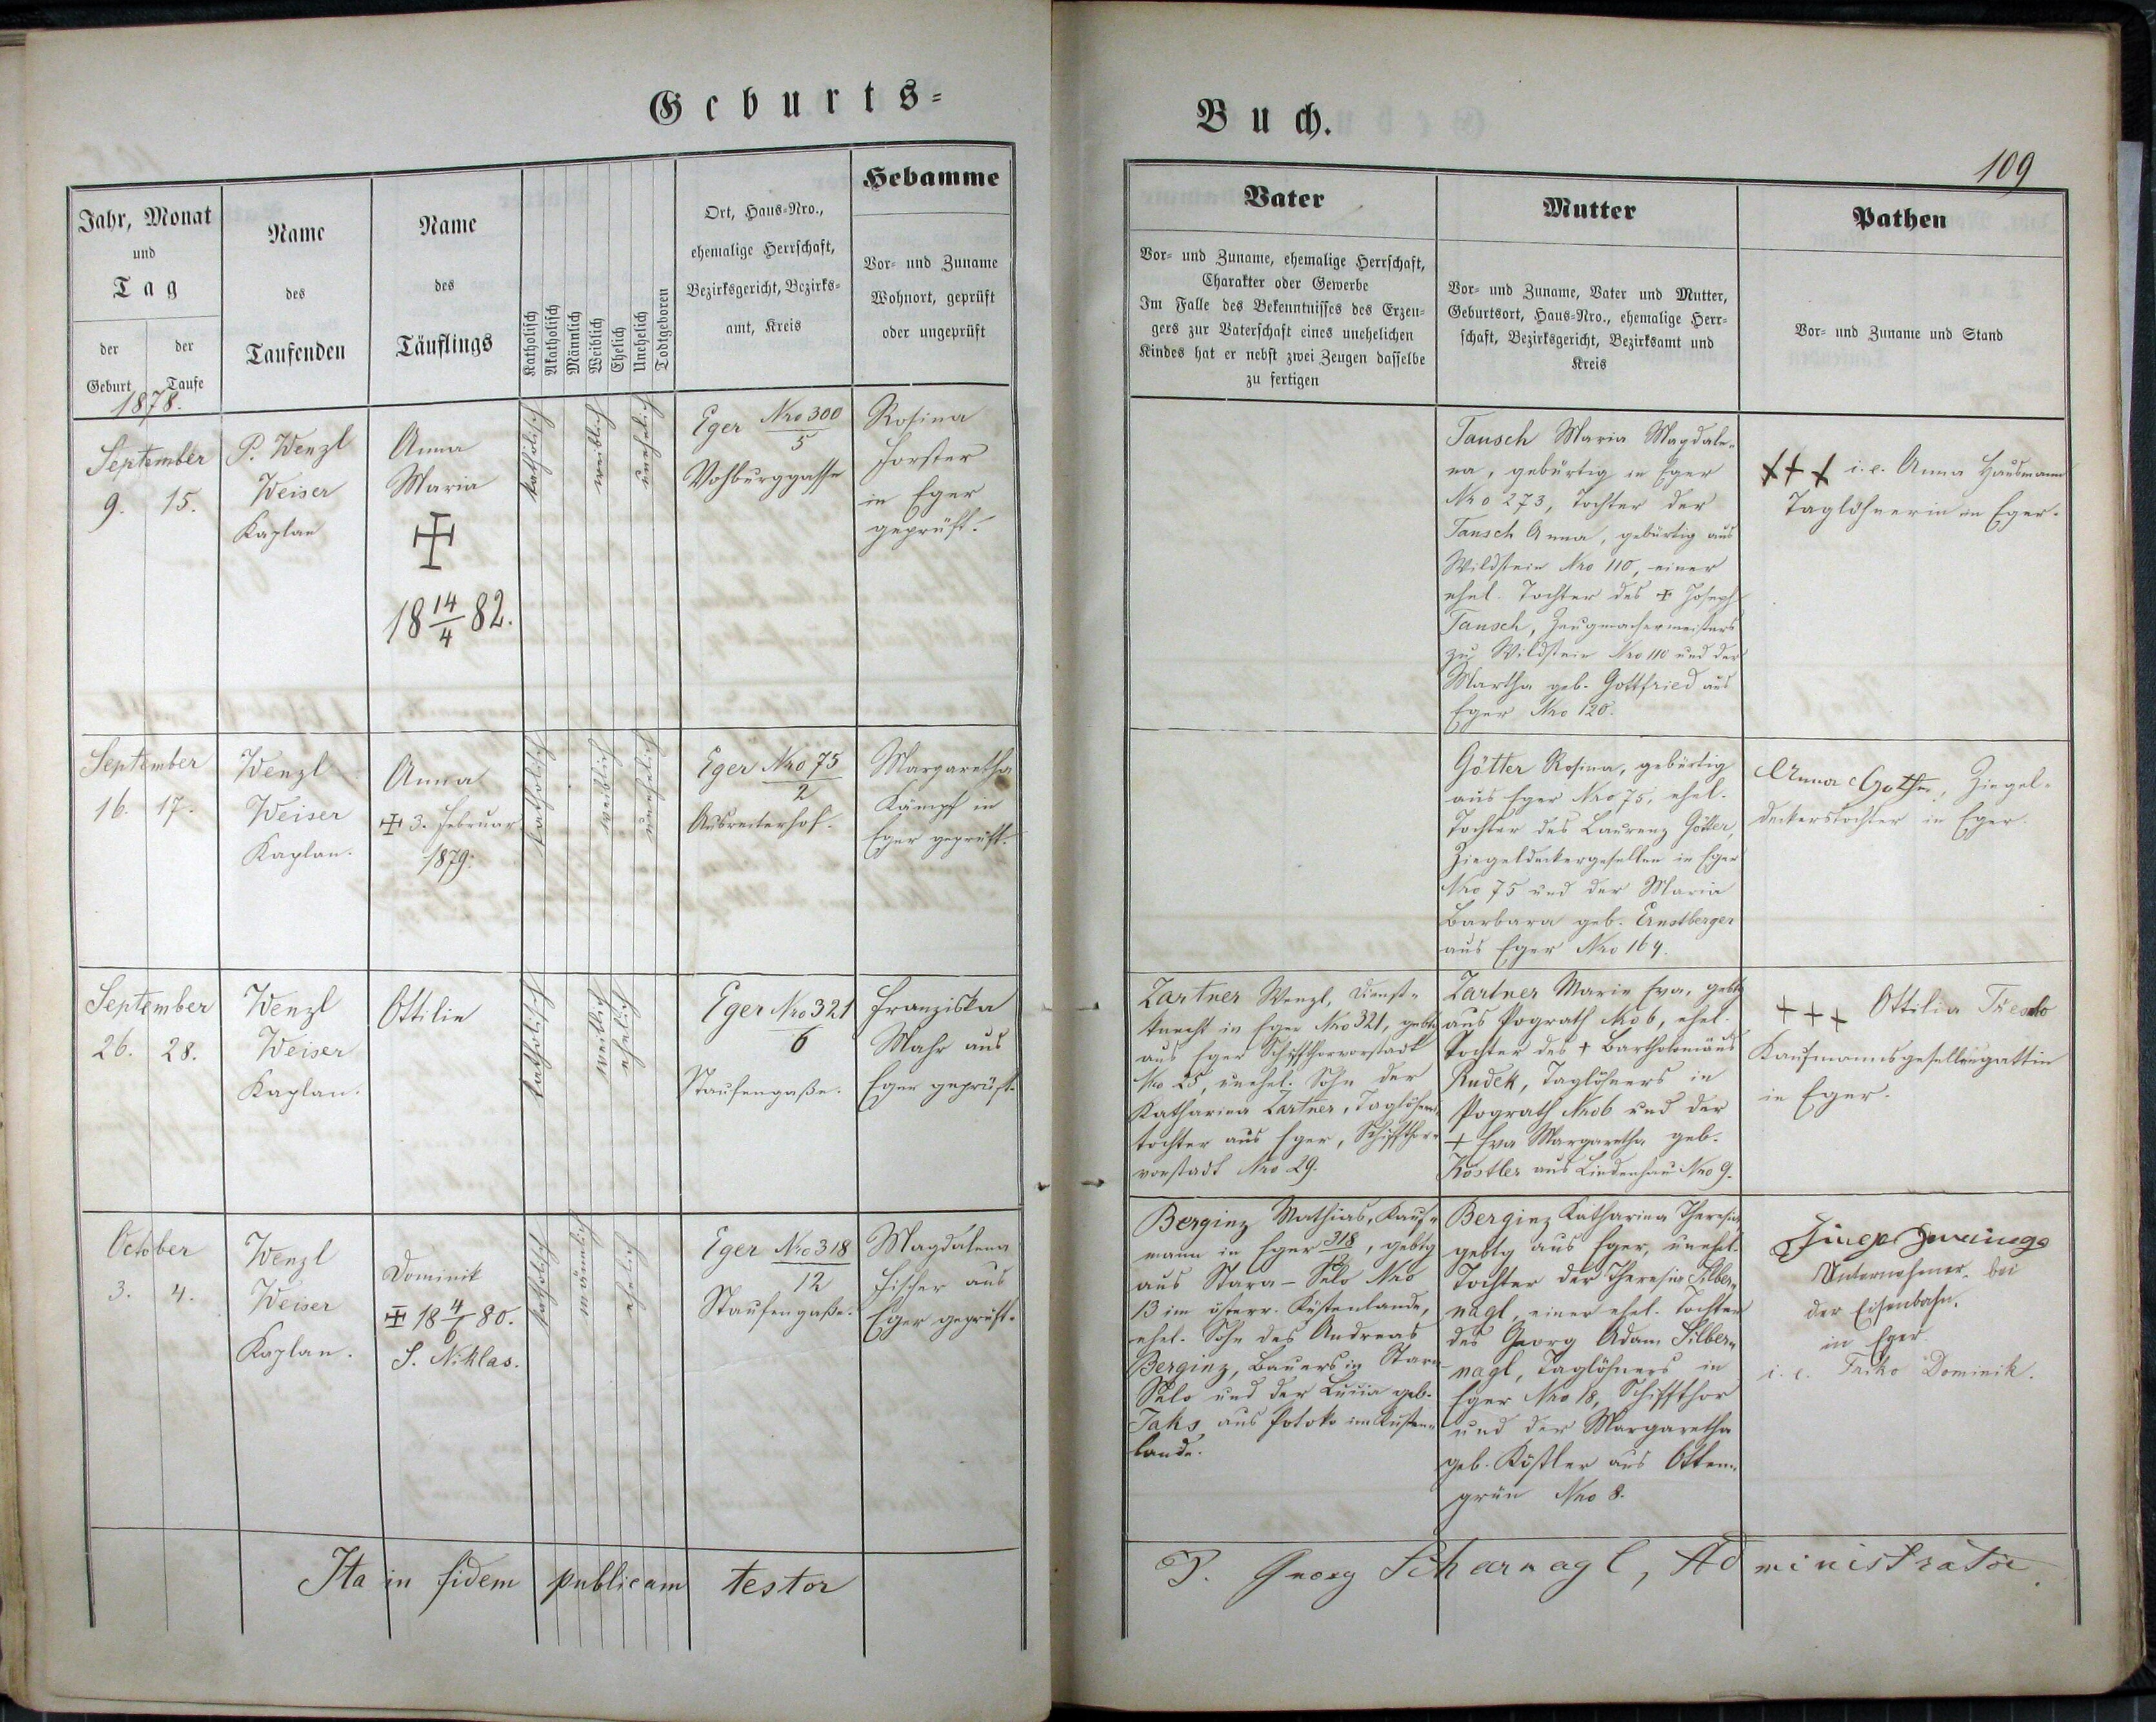 Geburts-
Buch.
109
Jahr, Monat
und
Tag
der Geburt
der Taufe
Name
des
Taufenden
Name
des
Täuflings
Katholisch
Akatholisch
Männlich
Weiblich
Ehelich
Unehelich
Todtgeboren
Ort, Haus-Nro.,
ehemalige Herrschaft,
Bezirksgericht, Bezirks-
amt, Kreis
Hebamme
Vor- und Zuname
Wohnort, geprüft
oder ungeprüft
Vater
Vor- und Zuname, ehemalige Herrschaft,
Charakter oder Gewerbe
Im Falle des Bekenntnisses des Erzeu-
gers zur Vaterschaft eines unehelichen
Kindes hat er nebst zwei Zeugen dasselbe
zu fertigen
Mutter
Vor- und Zuname, Vater und Mutter,
Geburtsort, Haus-Nro., ehemalige Herr-
schaft, Bezirksgericht, Bezirksamt und
Kreis
Pathen
Vor- und Zuname und Stand
1878.
September
9. 15.
P. Wenzl
Weiser
Kaplan
Anna
Maria
18 14/4 82.
katholisch
weiblich
unehelich
Eger Nro 300/5
Vohburggasse
Rosina
Forster
in Eger
geprüft.
Tausch Maria Magdale-
na, gebürtig in Eger
Nro 273, Tochter der
Tausch Anna, gebürtig aus
Wildstein Nro 110, einer
ehel. Tochter des + Joseph
Tausch, Zeugmachermeisters
zu Wildstein Nro 110 und der
Martha geb. Gottfried aus
Eger Nro 120.
+++ i. e. Anna Hausmann
Taglöhnerin in Eger.
September
16. 17.
Wenzl
Weiser
Kaplan.
Anna
+ 3. Februar
1879.
katholisch
weiblich
unehelich
Eger Nro 75/2
Ausreiterhof.
Margaretha
Kämpf in
Eger geprüft.
Götter Rosina, gebürtig
aus Eger Nro 75, ehel.
Tochter des Laurenz Götter,
Ziegeldeckergesellen in Eger
Nro 75 und der Maria
Barbara geb. Ernstberger
aus Eger Nro 164.
Anna Ziegel-
deckerstochter in Eger.
September
26. 28.
Wenzl
Weiser
Kaplan.
Ottilie
katholisch
weiblich
ehelich
Eger Nro 321/6
Staufengaße.
Franziska
Mahr aus
Eger geprüft.
Zartner Wenzl, Dienst-
knecht in Eger Nro 321, gebtg
aus Eger Schiffthorvorstadt
Nro 25, unehel. Sohn der
Katharina Zartner, Taglöhners-
tochter aus Eger, Schiffthor-
vorstadt Nro 29.
Zartner Marie Eva, gebtg
aus Pograth Nro 6, ehel.
Tochter des + Bartholomäus
Rudek, Taglöhners in
Pograth Nro 6 und der
+ Eva Margaretha geb.
Köstler aus Lindenhau Nro 9.
+++ Ottilia
Kaufmannsgesellensgattin
in Eger.
October
3. 4.
Wenzl
Weiser
Kaplan.
Dominik
+ 18 4/6 80.
S. Niklas.
katholisch
männlich
ehelich
Eger Nro 318/12
Staufengaße.
Magdalena
Fischer aus
Eger geprüft.
Berginz Mathias, Kauf-
mann in Eger 318/12, gebtg
aus Stara-Selo Nro
13 im österr. Küstenlande,
ehel. Sohn des Andreas
Berginz, Bauers in Stara-
Selo und der Lucia geb.
Jaks aus Potoko im Küsten-
lande.
Berginz Katharina Theresia,
gebtg aus Eger, unehel.
Tochter der Theresia Silber-
nagl, einer ehel. Tochter
des Georg Adam Silber-
nagl, Taglöhners in
Eger Nro 18, Schiffthor
und der Margaretha
geb. Köstler aus Otten-
grün Nro 8.
Unternehmer bei
der Eisenbahn.
in Eger
i. e. Dominik.
Ita in fidem publicam testor
P. Georg Scharnagl, Administrator.